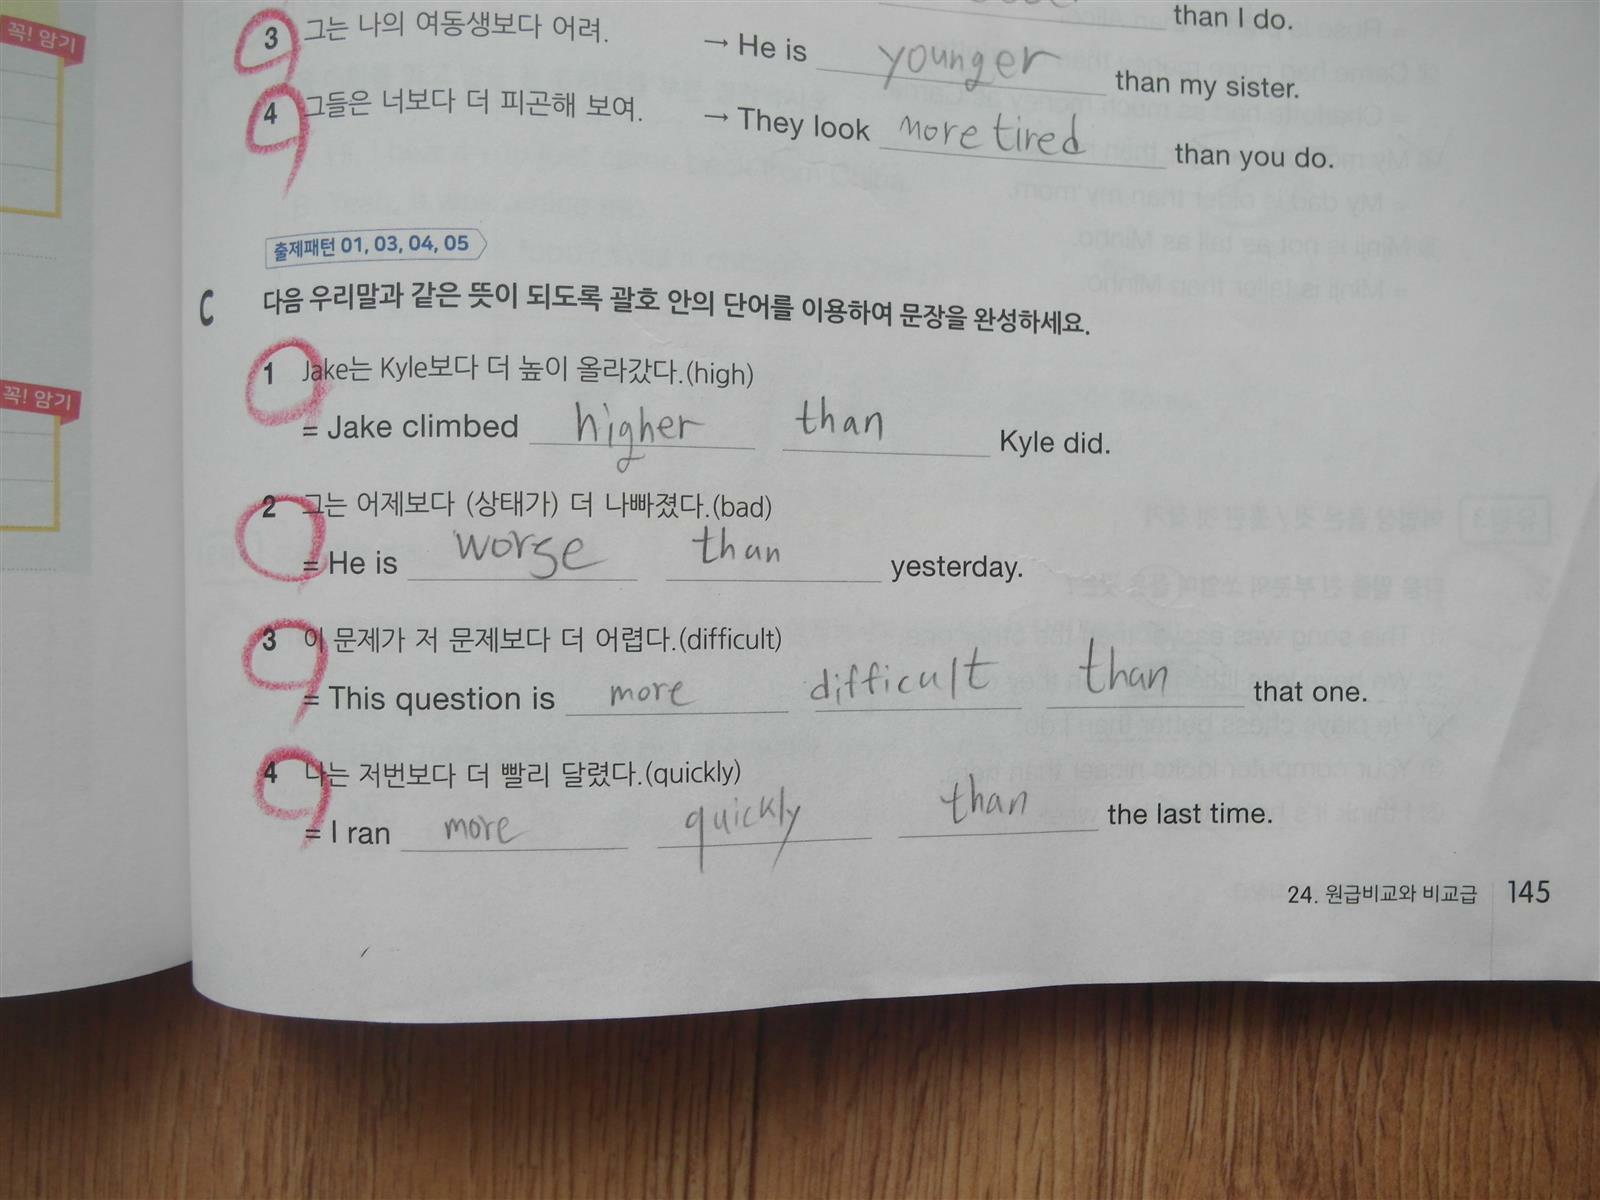 than I do.
꼭! 암기
3 그는 나의 여동생보다 어려. → He is younger than my sister.
4 그들은 너보다 더 피곤해 보여. → They look more tired than you do.
출제패턴 01, 03, 04, 05
C 다음 우리말과 같은 뜻이 되도록 괄호 안의 단어를 이용하여 문장을 완성하세요.
1 Jake는 Kyle보다 더 높이 올라갔다.(high)
= Jake climbed higher than Kyle did.
꼭! 암기
2 그는 어제보다 (상태가) 더 나빠졌다.(bad)
= He is worse than yesterday.
3 이 문제가 저 문제보다 더 어렵다.(difficult)
= This question is more difficult than that one.
4 나는 저번보다 더 빨리 달렸다.(quickly)
= I ran more quickly than the last time.
24. 원급비교와 비교급 145